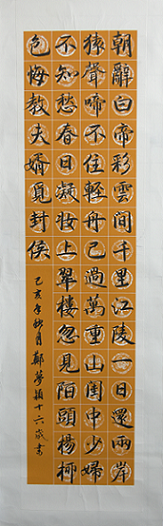 朝辭白帝彩雲間千里江陵一日還兩岸
猿聲啼不住輕舟已過萬重山閨中少婦
不知愁春日凝妝上翠樓忽見陌頭楊柳
色悔教夫婿覓封侯
己亥年秋月鄭夢穎十六歲書